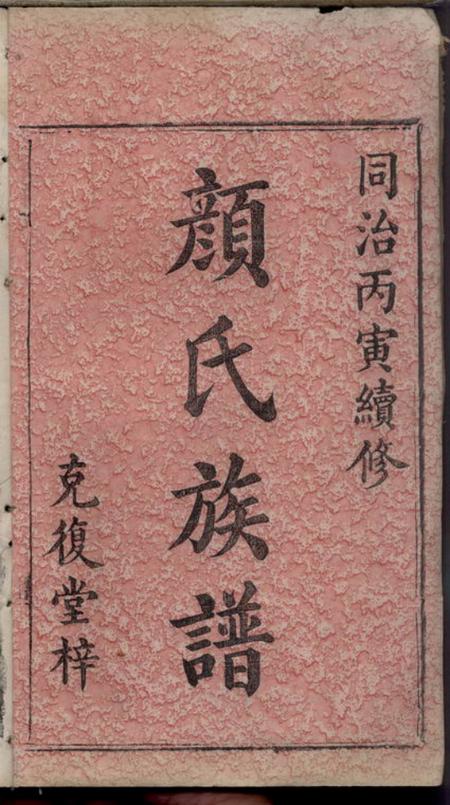 同治丙寅續修
顏氏族譜
克復堂梓